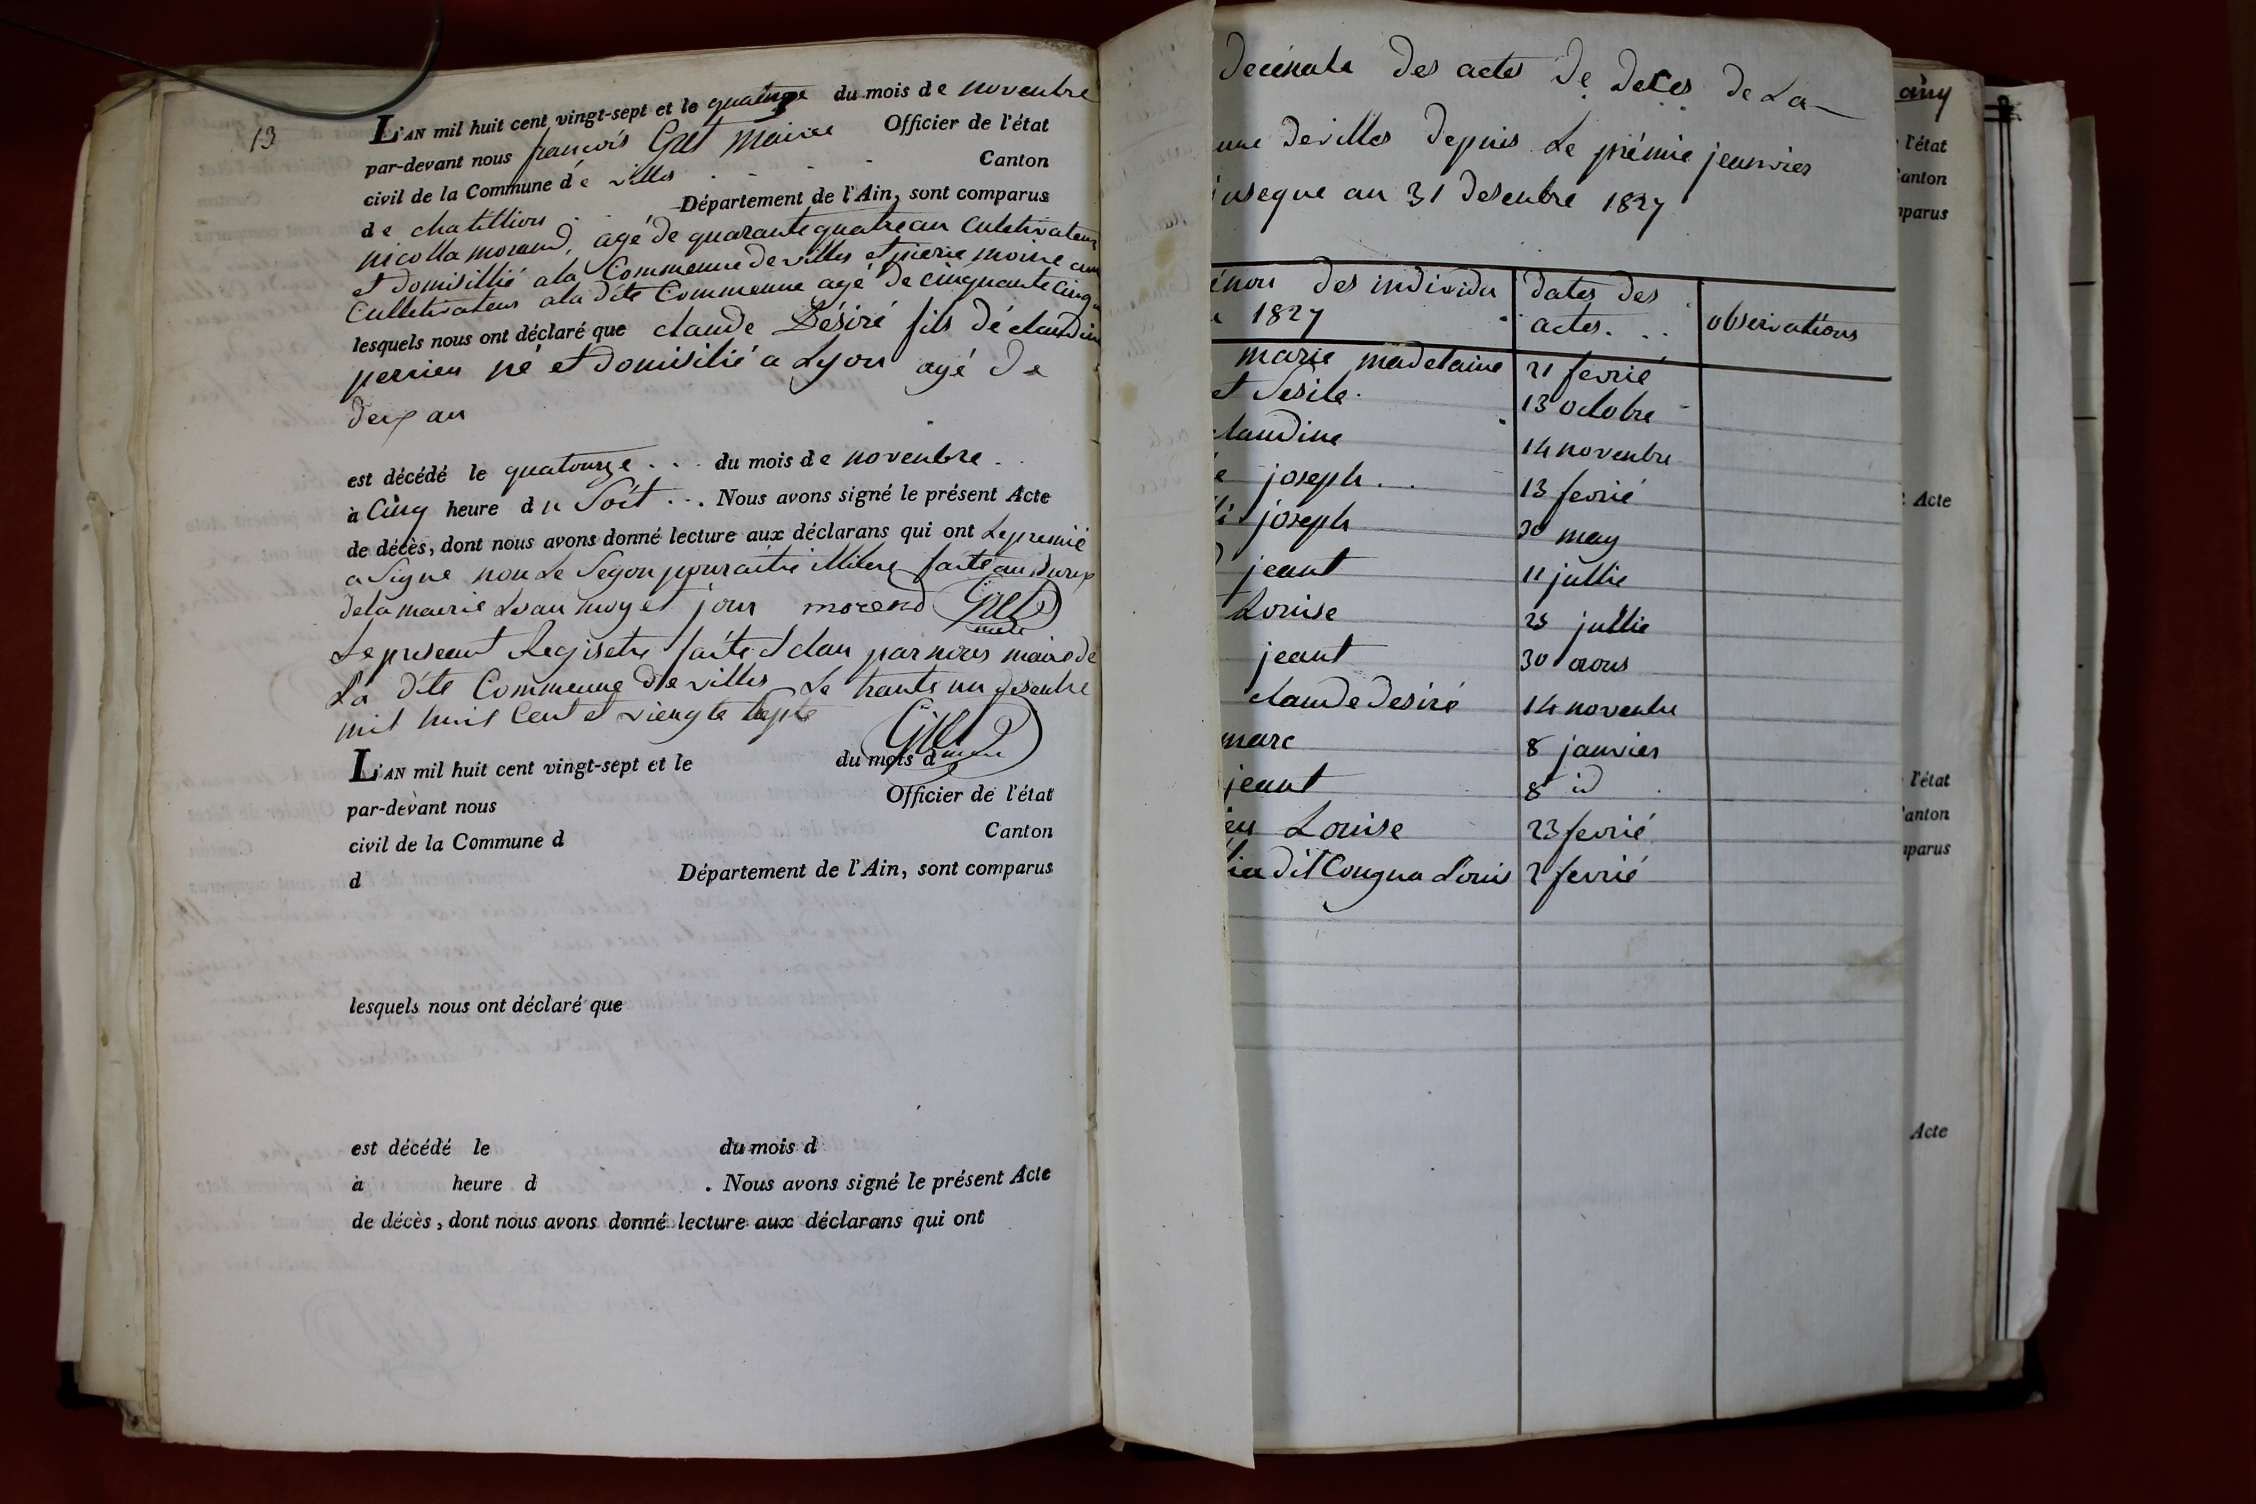 13
L'AN mil huit cent vingt-sept et le quatorze du mois de novenbre
par-devant nous françois Gret Maire Officier de l'état
civil de la Commune de villes Canton
de chatillion Département de l'Ain, sont comparus
nicolla morand, agé de quarante quatre an Cultivateur
et domisillié a la Commenne de villes et pierre moine
Cultivateur a la dite Commenne agé de cinquante cinq
lesquels nous ont déclaré que claude Désiré fils de
perrieu né et domisilié a Lyon agé de
deux an
est décédé le quatourze . . . du mois de novenbre .
à Cinq heure du Soit . . . Nous avons signé le présent Acte
de décès, dont nous avons donné lecture aux déclarans qui ont Le premié
a Signe non Le Segon pour aitre illitere faite au
de la mairie Lean moy et jour morend Gret
maire
Le preseant Registre faite et clau par nous maire de
La dite Commenne de villes Le trante un desenbre
mil huit Cent et viengte septe Gret
maire
L'AN mil huit cent vingt-sept et le du mois d
par-devant nous Officier de l'état
civil de la Commune d Canton
d Département de l'Ain, sont comparus
lesquels nous ont déclaré que
est décédé le du mois d
à heure d . Nous avons signé le présent Acte
de décès, dont nous avons donné lecture aux déclarans qui ont
decenale des actes de deces de La
une de villes depuis Le prémie jeanvier
jusque au 31 desenbre 1827
énon des individu dates des
1827 actes . . . observations
marie madelaine 21 fevrié
et Sesile 13 octobre
claudine 14 novenbre
joseph . . 13 fevrié
joseph 30 may
jeant 11 jullie
Louise 23 jullie
jeant 30 aous
claude desiré 14 novenbre
marc 8 janvier
jeant 8 id
Louise 23 fevrié
dit Congna Louis 2 fevrié
cinq
l'état
Canton
comparus
Acte
l'état
Canton
comparus
Acte